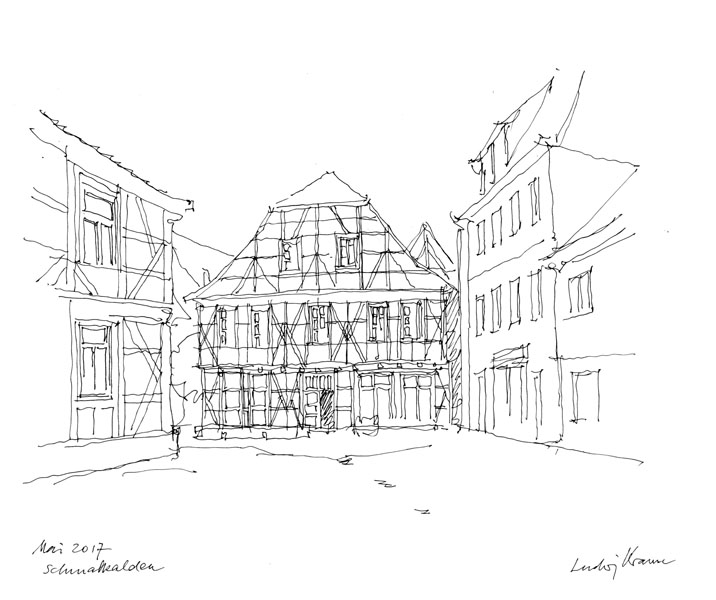 Mai 2017
Schmalkalden
Ludwig Krause